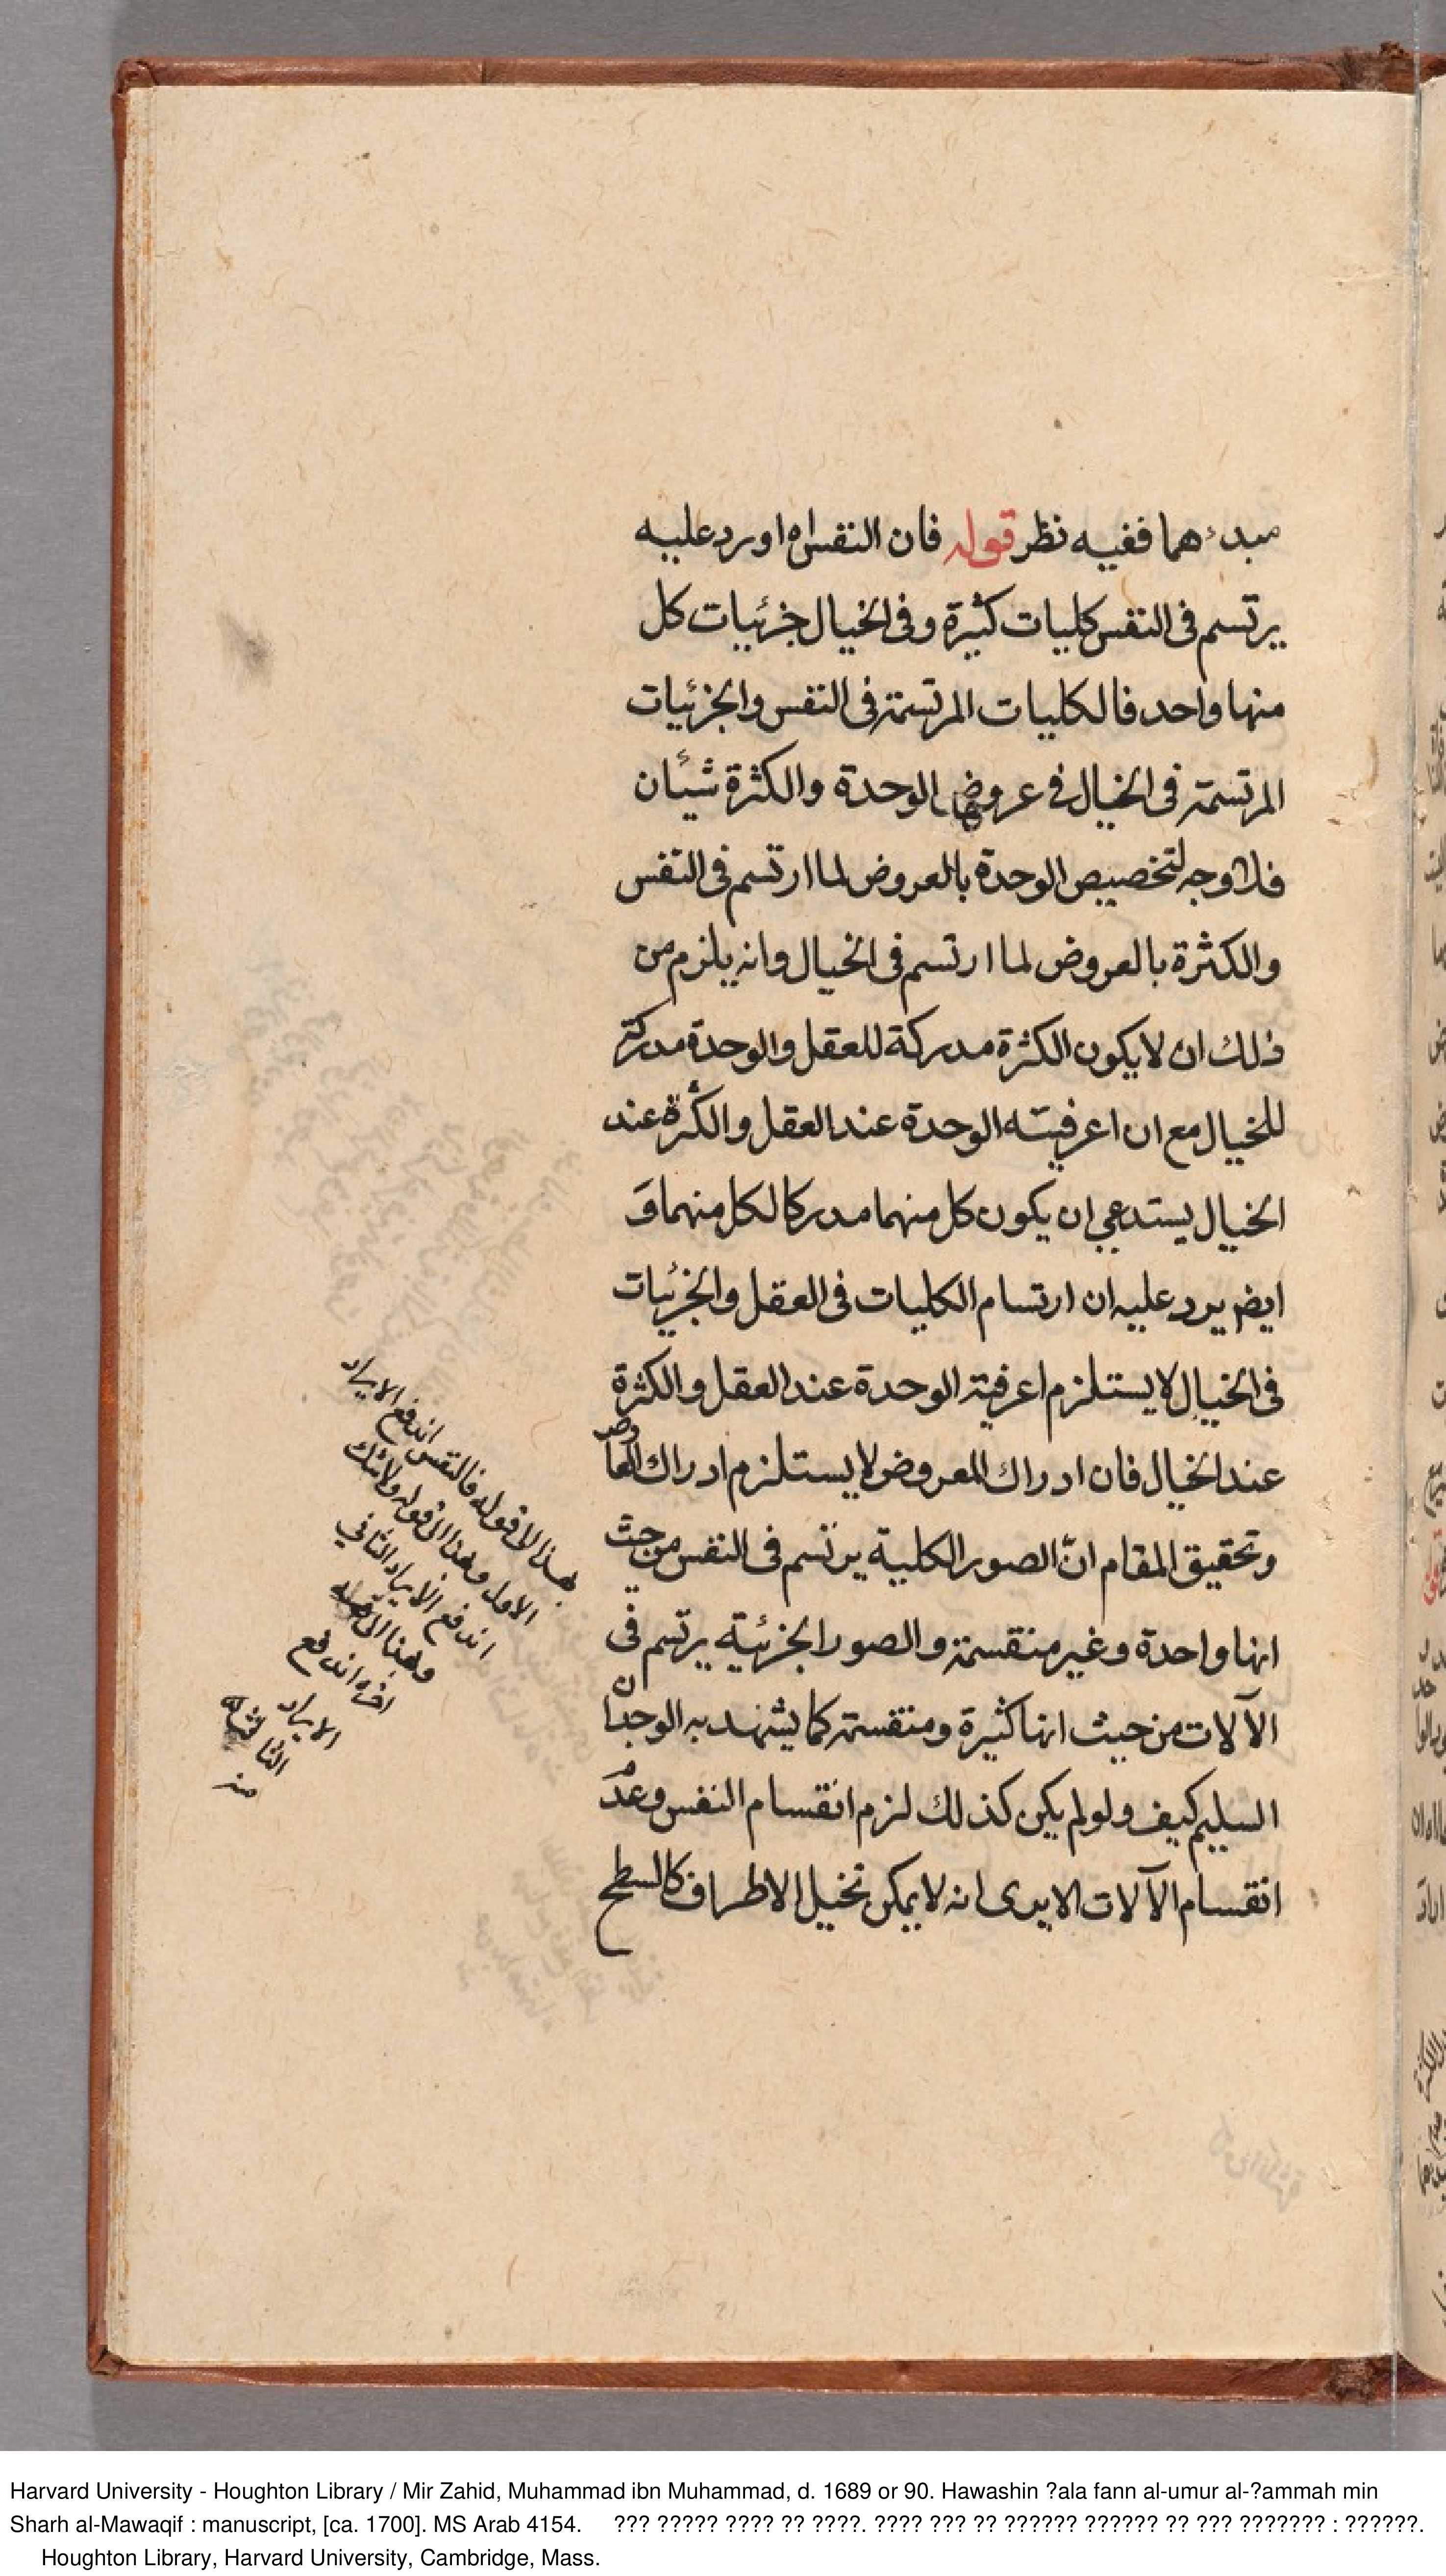 مبدءهما ففيه نظر قوله فان النفس اه اورد عليه
يرتسم فى النفس كليات كثيرة وفى الخيال جزئيات كل
منها واحد فالكليات المرتسمة فى النفس والجزئيات
المرتسمة فى الخيال فى عروضهما الوحدة والكثرة شيئان
فلا وجه لتخصيص الوحدة بالعروض لما ارتسم فى النفس
والكثرة بالعروض لما ارتسم فى الخيال وانه يلزم من
ذلك ان لا يكون الكثرة مدركة للعقل والوحدة مدركة
للخيال مع ان اعرفيته الوحدة عند العقل والكثرة عند
الخيال يستدعي ان يكون كل منهما مدركا لكل منهما وَ
ايضا يرد عليه ان ارتسام الكليات فى العقل والجزئيات
فى الخيال لا يستلزم اعرفية الوحدة عند العقل والكثرة
عند الخيال فان ادراك المعروض لا يستلزم ادراك العارض
وتحقيق المقام انّ الصور الكلية يرتسم فى النفس من حيث
انها واحدة وغير منقسمة والصور الجزئية يرتسم فى
الآلات من حيث انها كثيرة ومنقسمة كما يشهد به الوجدان
السليم كيف ولو لم يكن كذلك لزم انقسام النفس وعدم
انقسام الآلات الا يرى انه لا يمكن تخيل الاطراف كالسطح
بهذا الى قوله فالنفس اندفع الايراد
الاول وهذا الى قوله ولا شك
اندفع الايراد الثاني
وهذا الى
اخره اندفع
الايراد
الثالث
منه
Harvard University - Houghton Library / Mir Zahid, Muhammad ibn Muhammad, d. 1689 or 90. Hawashin ?ala fann al-umur al-?ammah min
Sharh al-Mawaqif : manuscript, [ca. 1700]. MS Arab 4154. ??? ????? ???? ?? ????. ???? ??? ?? ?????? ?????? ?? ??? ??????? : ??????.
Houghton Library, Harvard University, Cambridge, Mass.